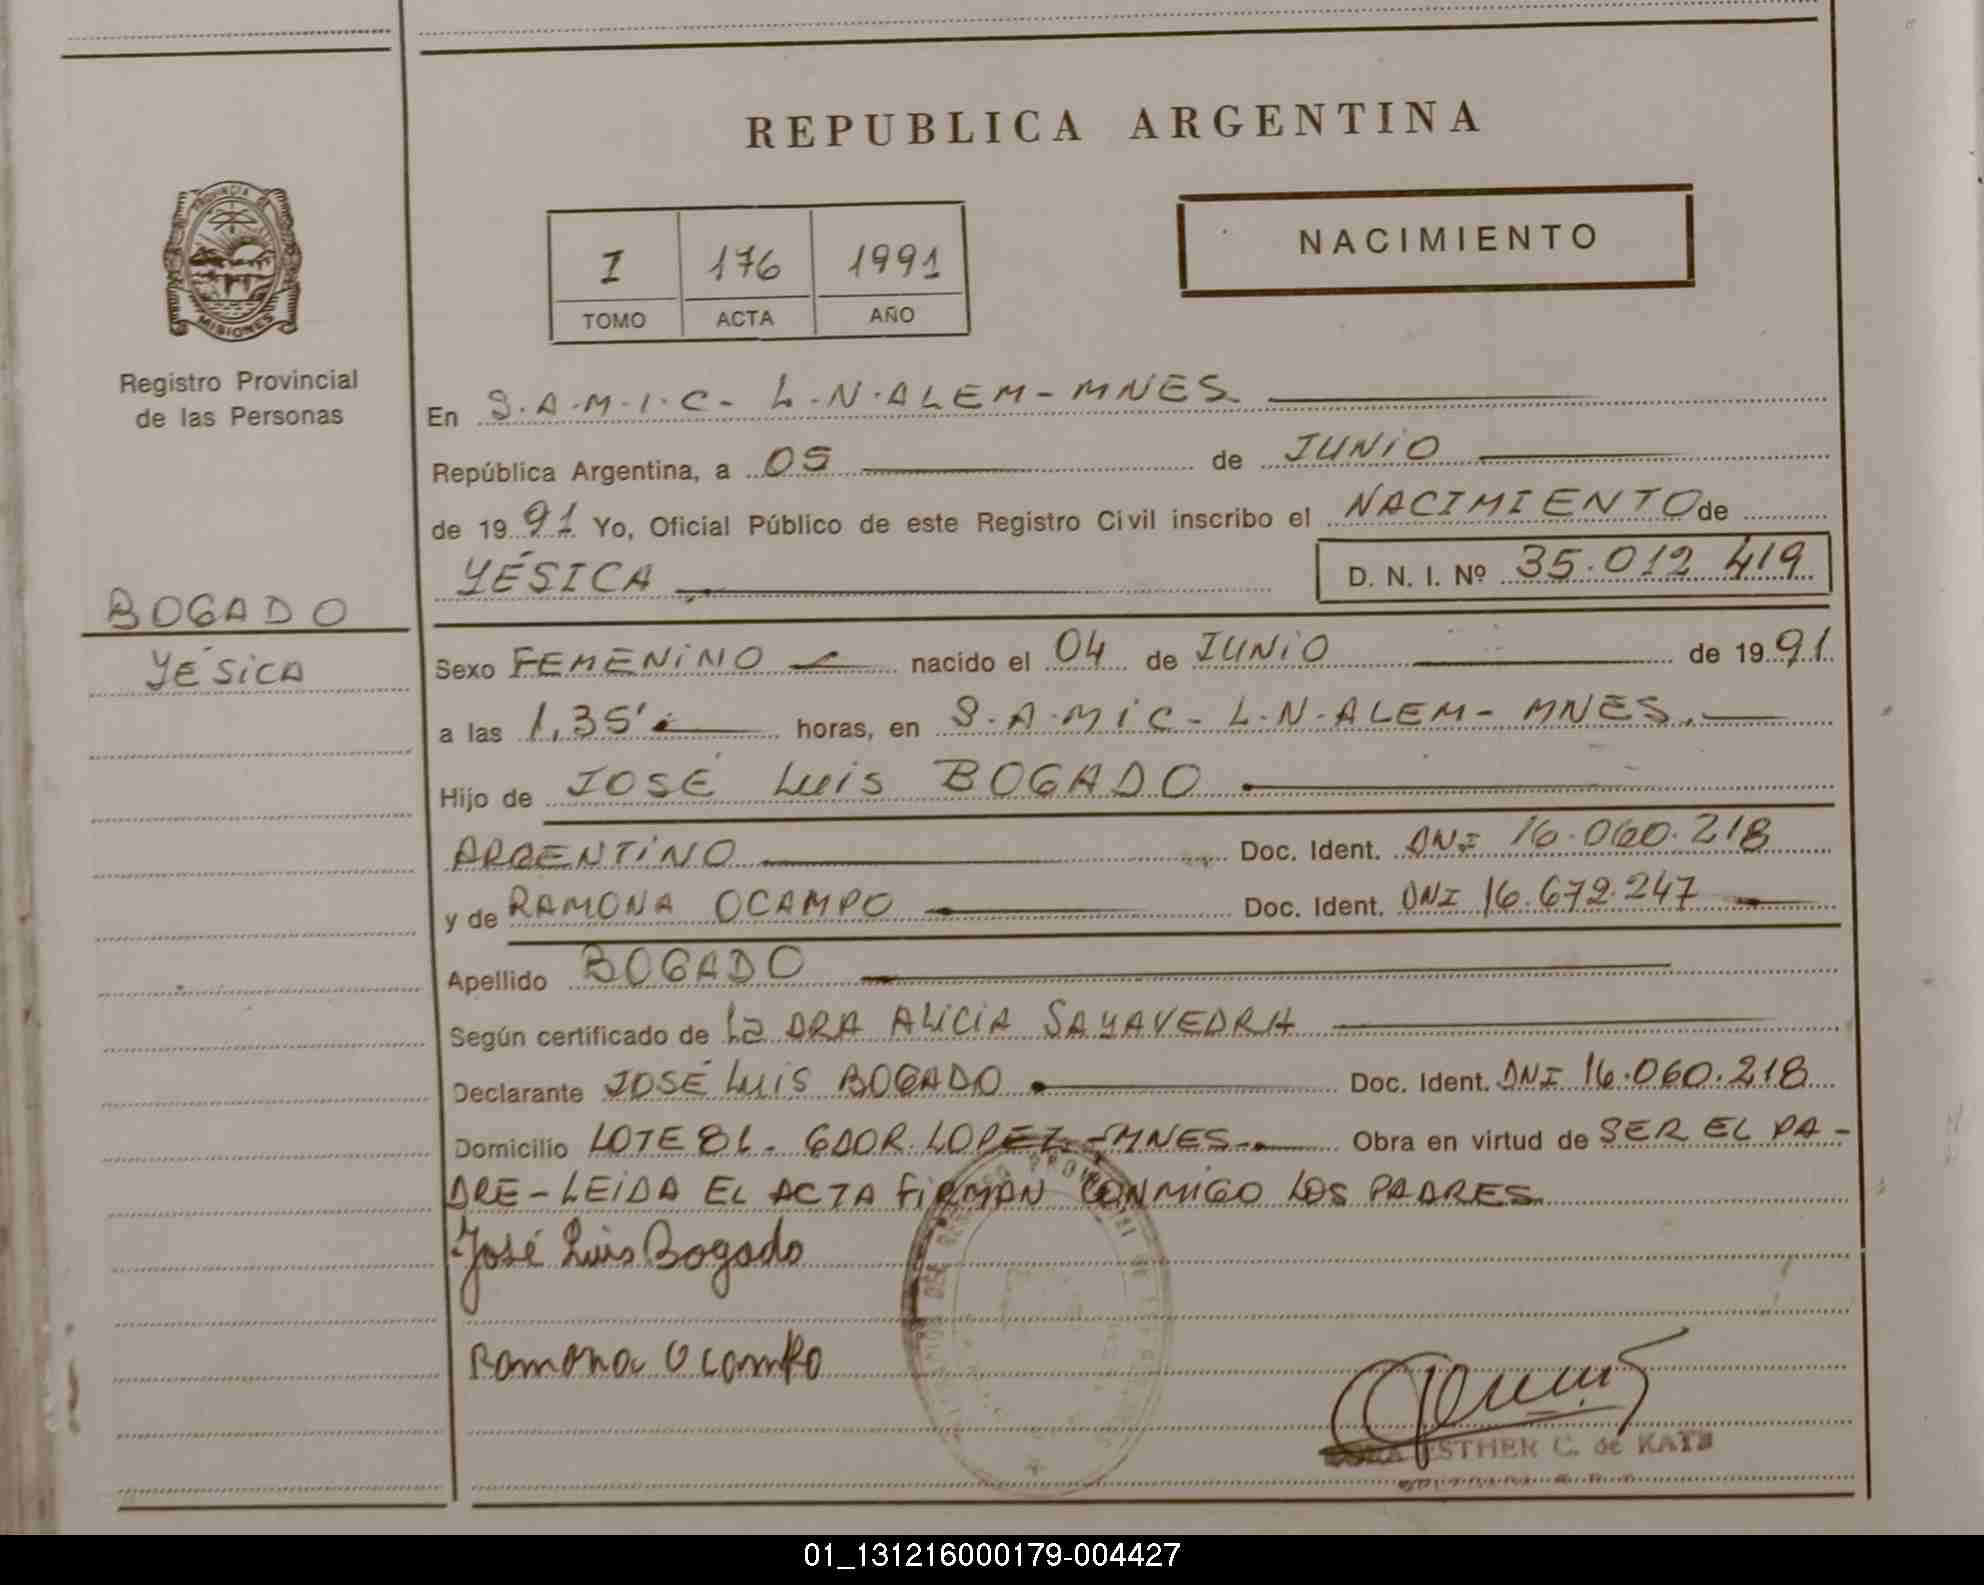 REPUBLICA ARGENTINA
PROVINCIA DE
MISIONES
Registro Provincial
de las Personas
I 176 1991
TOMO ACTA AÑO
NACIMIENTO
En S.A.M.I.C- L.N.ALEM-MNES
República Argentina, a 05 de JUNIO
de 1991 Yo, Oficial Público de este Registro Civil inscribo el NACIMIENTO de
YÉSICA D. N. I. Nº 35.012 419
BOGADO
YÉSICA
Sexo FEMENINO nacido el 04 de JUNIO de 1991
a las 1,35' horas, en S.A.MIC- L.N.ALEM- MNES.
Hijo de JOSÉ Luis BOGADO
ARGENTINO Doc. Ident. DNI 16.060.218
y de RAMONA OCAMPO Doc. Ident. DNI 16.672.247
Apellido BOGADO
Según certificado de La DRA ALICIA SAYAVEDRA
Declarante JOSÉ LUIS BOGADO Doc. Ident. DNI 16.060.218
Domicilio LOTE 81- GDOR. LOPEZ-MNES- Obra en virtud de SER EL PA-
DRE-LEIDA EL ACTA FIRMAN CONMIGO LOS PADRES
José Luis Bogado
Ramona Ocampo
ESTHER C. de KATZ
01_131216000179-004427